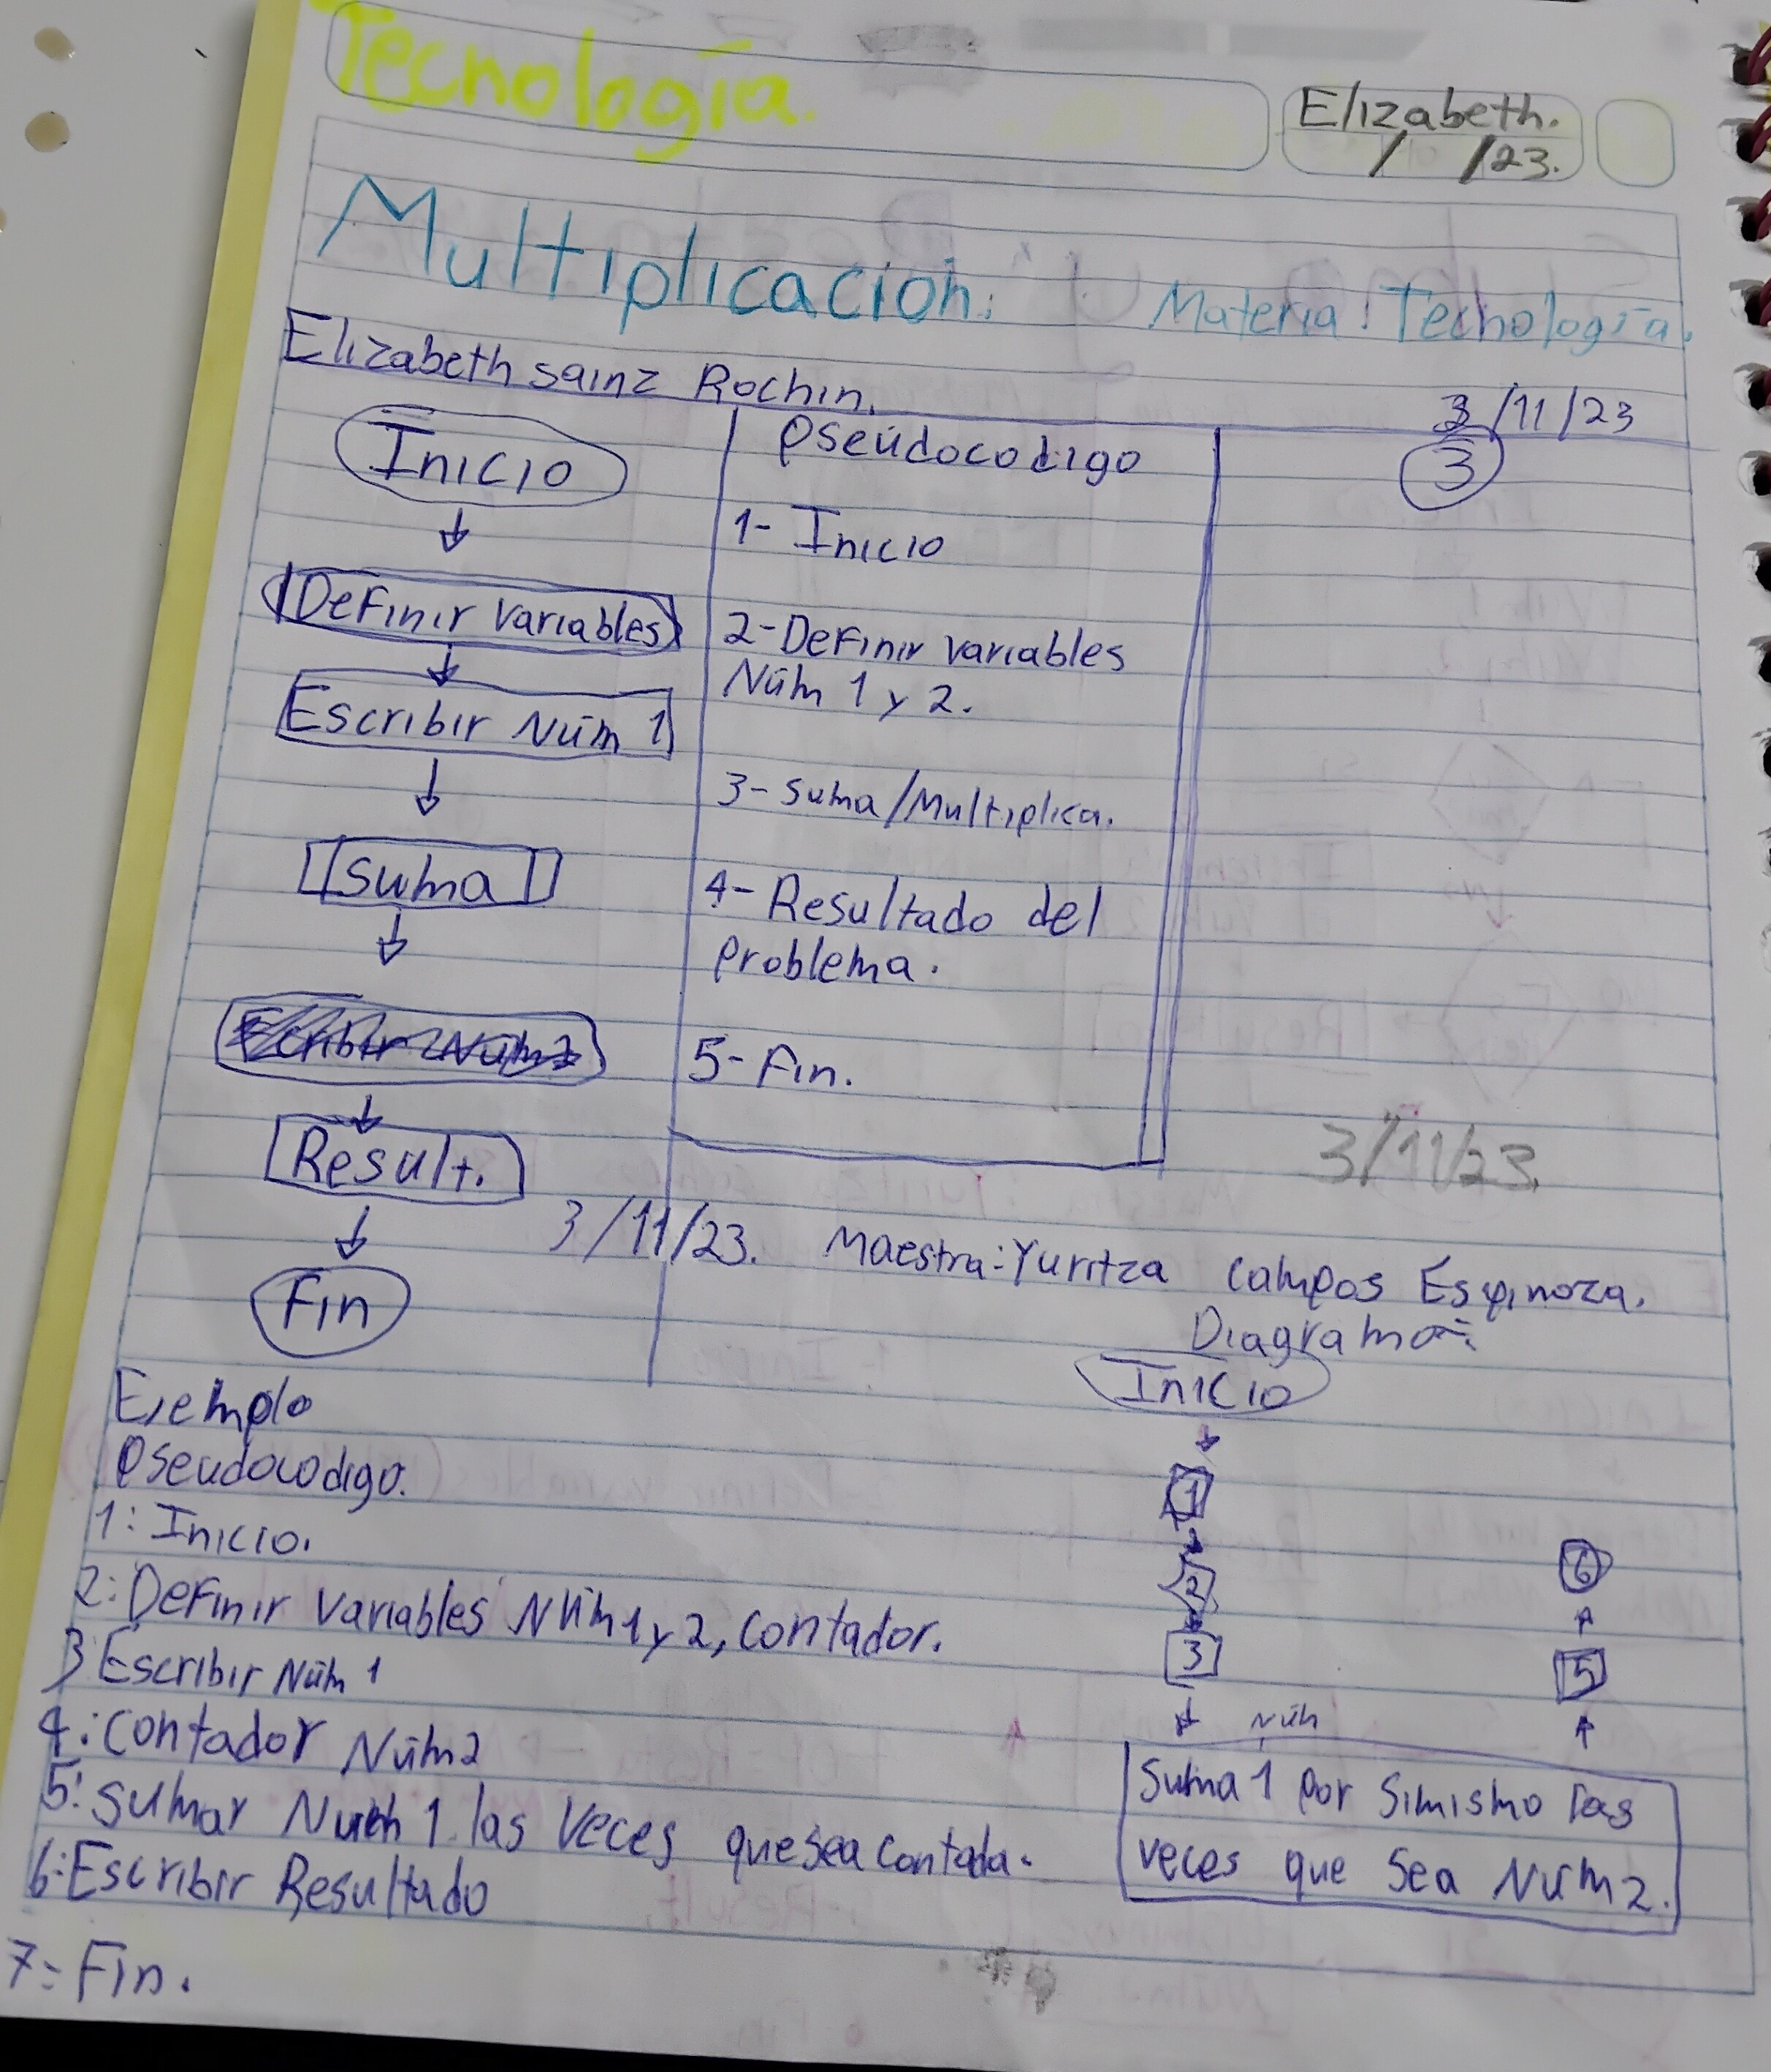 Tecnología.
Elizabeth.
/ /23.
Multiplicación:
Materia: Tecnología.
Elizabeth sainz Rochin.
3/11/23
3
Inicio
Definir variables
Escribir Núm 1
Suma
Result.
Fin
Pseudocodigo
1- Inicio
2- Definir variables
Núm 1 y 2.
3- Suma/Multiplica.
4- Resultado del
problema.
5- Fin.
3/11/23.
3/11/23. Maestra: Yuritza Campos Espinoza.
Ejemplo
Pseudocodigo.
1: Inicio.
2: Definir variables Núm 1 y 2, contador.
3 Escribir Núm 1
4: Contador Núm 2
5: Sumar Núm 1 las veces que sea contada.
6: Escribir Resultado
7= Fin.
Diagrama:
Inicio
1
2
3
Núm
Suma 1 por simismo las
veces que sea Núm 2.
5
6